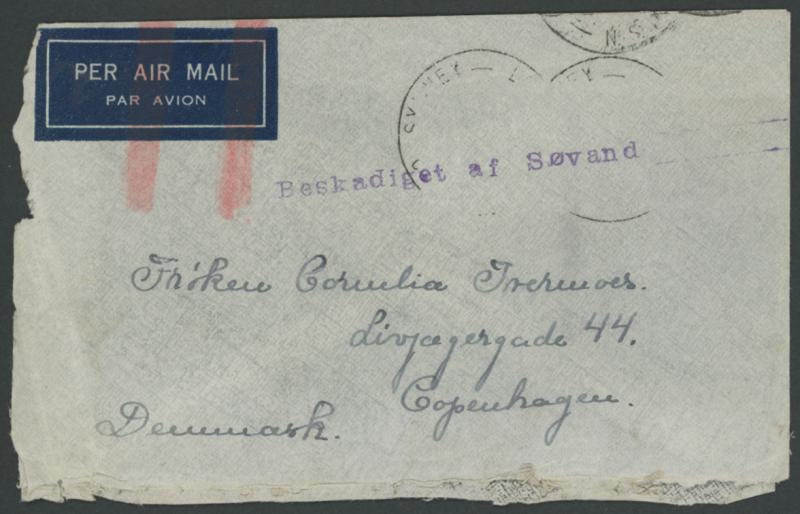 PER AIR MAIL
PAR AVION
N.S.
SYDNEY
Beskadiget af Søvand
Frøken Cornelia Ivermoes.
Livjægergade 44.
Copenhagen.
Denmark.